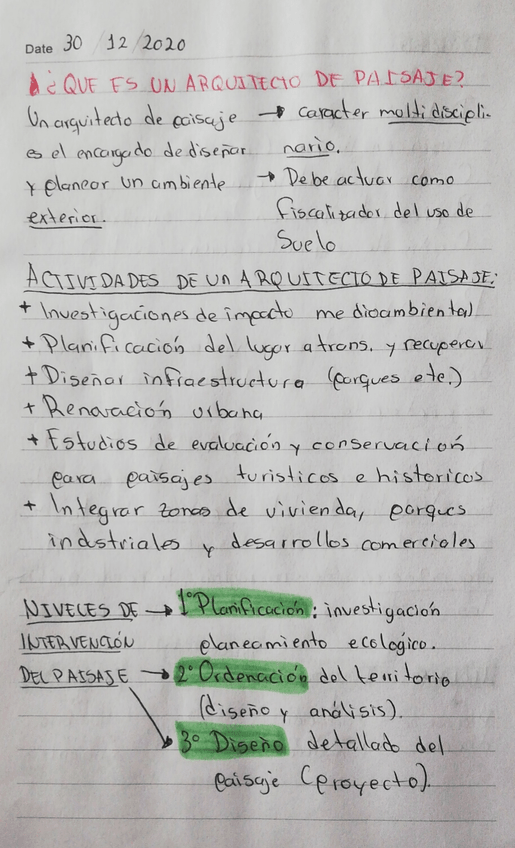 Date 30 / 12 / 2020
¿QUE ES UN ARQUITECTO DE PAISAJE?
Un arquitecto de paisaje → caracter moltidiscipli-
es el encargado de diseñar nario.
y planear un ambiente → Debe actuar como
exterior. fiscalizador del uso de
suelo
ACTIVIDADES DE UN ARQUITECTO DE PAISAJE:
+ Investigaciones de impacto medioambiental
+ Planificación del lugar a trans. y recuperar
+ Diseñar infraestructura (parques etc.)
+ Renovación urbana
+ Estudios de evaluación y conservación
para paisajes turisticos e historicos
+ Integrar zonas de vivienda, parques
industriales y desarrollos comerciales
NIVELES DE → 1° Planificación: investigación
INTERVENCIÓN planeamiento ecologico.
DEL PAISAJE → 2° Ordenación del territorio
(diseño y análisis).
3° Diseño detallado del
paisaje (proyecto).